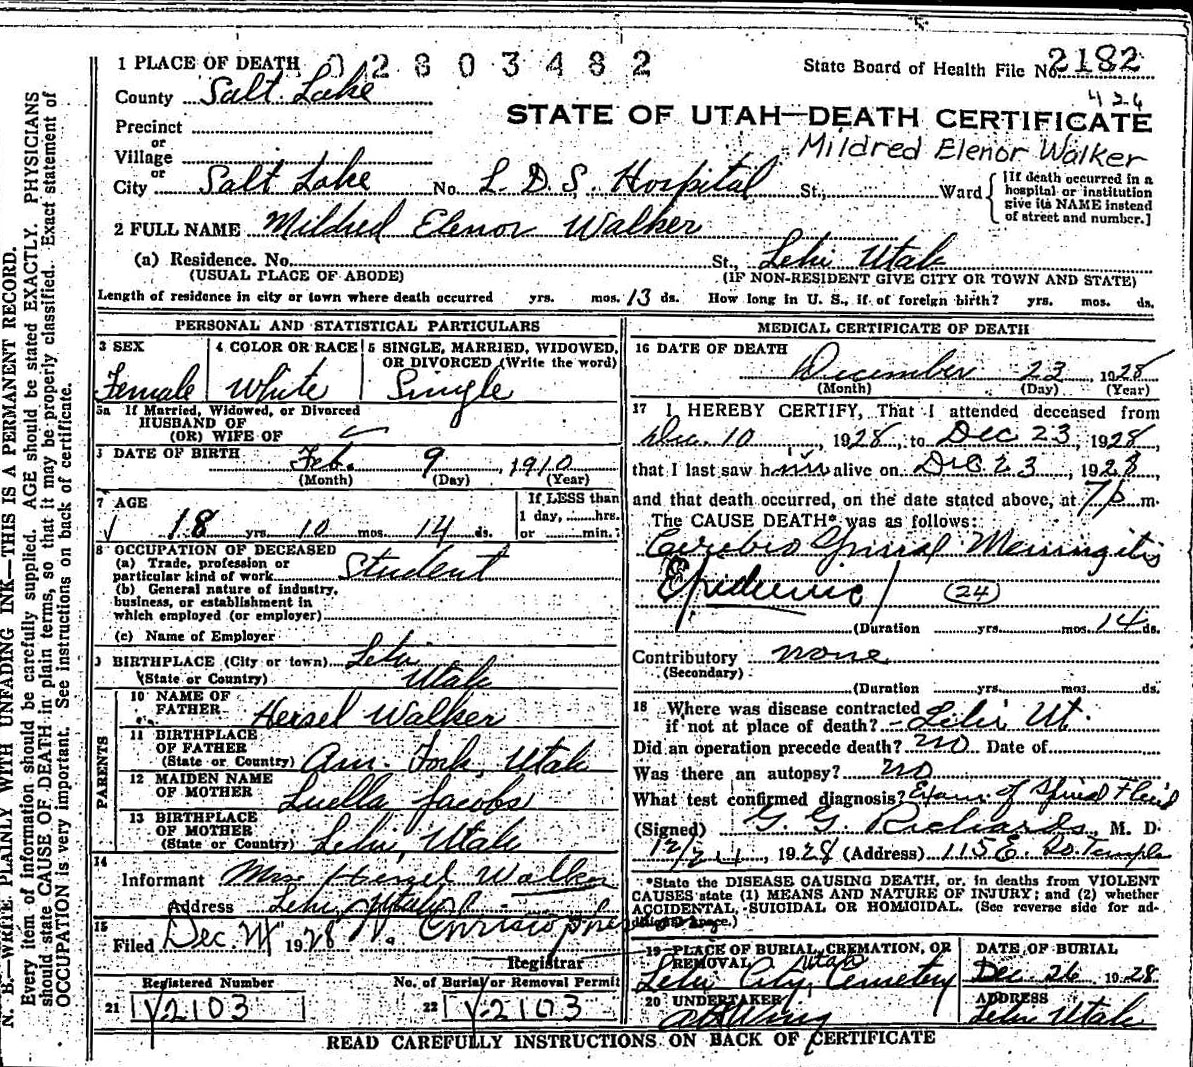 1 PLACE OF DEATH 02803482
State Board of Health File No. 2182
County Salt Lake
426
STATE OF UTAH—DEATH CERTIFICATE
Precinct
or
Mildred Elenor Walker
Village
or
City Salt Lake No. L. D. S. Hospital St., Ward
{[If death occurred in a hospital or institution give its NAME instead of street and number.]
2 FULL NAME Mildred Elenor Walker
(a) Residence. No. St., Lehi Utah
(USUAL PLACE OF ABODE) (IF NON-RESIDENT GIVE CITY OR TOWN AND STATE)
Length of residence in city or town where death occurred yrs. mos. 13 ds. How long in U. S., if of foreign birth? yrs. mos. ds.
PERSONAL AND STATISTICAL PARTICULARS
3 SEX
Female
4 COLOR OR RACE
White
5 SINGLE, MARRIED, WIDOWED, OR DIVORCED (Write the word)
Single
5a If Married, Widowed, or Divorced
HUSBAND OF
(OR) WIFE OF
DATE OF BIRTH Feb. 9, 1910
(Month) (Day) (Year)
7 AGE
18 yrs. 10 mos. 14 ds.
If LESS than
1 day, hrs.
or min.
8 OCCUPATION OF DECEASED
(a) Trade, profession or
particular kind of work Student
(b) General nature of industry,
business, or establishment in
which employed (or employer)
(c) Name of Employer
9 BIRTHPLACE (City or town) Lehi
(State or Country) Utah
PARENTS
10 NAME OF
FATHER Hersel Walker
11 BIRTHPLACE
OF FATHER
(State or Country) Am. Fork, Utah
12 MAIDEN NAME
OF MOTHER Luella Jacobs
13 BIRTHPLACE
OF MOTHER
(State or Country) Lehi, Utah
14
Informant Mrs Hersel Walker
Address Lehi, Utah
15
Filed Dec. 24 1928
Registrar
Registered Number
21 Y2103
No. of Burial or Removal Permit
22 Y-2103
MEDICAL CERTIFICATE OF DEATH
16 DATE OF DEATH
December 23, 1928
(Month) (Day) (Year)
17 I HEREBY CERTIFY, That I attended deceased from
Dec. 10, 1928, to Dec 23, 1928,
that I last saw h im alive on Dec 23, 1928,
and that death occurred, on the date stated above, at 7 p. m.
The CAUSE DEATH* was as follows:
Cerebro Spinal Meningitis
Epidemic (24)
(Duration yrs. mos. 14 ds.
Contributory none
(Secondary)
(Duration yrs. mos. ds.
18 Where was disease contracted
if not at place of death?—Lehi Ut.
Did an operation precede death? No Date of
Was there an autopsy? no
What test confirmed diagnosis? Exam of Spinal Fluid
(Signed) G. G. Richards, M. D.
12/24, 1928 (Address) 115 E. So. Temple
*State the DISEASE CAUSING DEATH, or, in deaths from VIOLENT
CAUSES state (1) MEANS AND NATURE OF INJURY; and (2) whether
ACCIDENTAL, SUICIDAL OR HOMICIDAL. (See reverse side for ad-
19 PLACE OF BURIAL, CREMATION, OR
REMOVAL Utah
Lehi City Cemetery
DATE OF BURIAL
Dec. 26 1928
20 UNDERTAKER
ADDRESS
Lehi Utah
READ CAREFULLY INSTRUCTIONS ON BACK OF CERTIFICATE
N. B.—WRITE PLAINLY WITH UNFADING INK—THIS IS A PERMANENT RECORD.
Every item of information should be carefully supplied. AGE should be stated EXACTLY. PHYSICIANS
should state CAUSE OF DEATH in plain terms, so that it may be properly classified. Exact statement of
OCCUPATION is very important. See instructions on back of certificate.